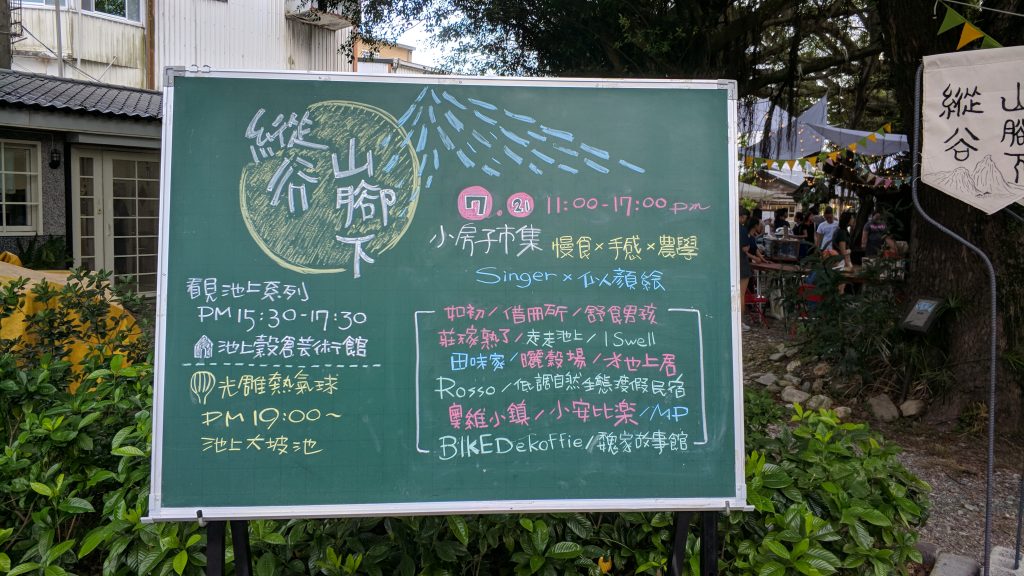 縱谷
山腳下
7.21 11:00-17:00 pm
小房子市集 慢食×手感×農學
Singer × 似顏絵
看見池上系列
PM 15:30-17:30
池上穀倉芸術館
光雕熱氣球
PM 19:00~
池上大坡池
如初/借冊所/野食男孩
莊稼熟了/走走池上/I Swell
田味家/曬穀場/才池上居
Rosso/低調自然生態渡假民宿
奧維小鎮/小安比楽/MP
BIKEDekoffie/聽家故事館
縱谷
山腳下